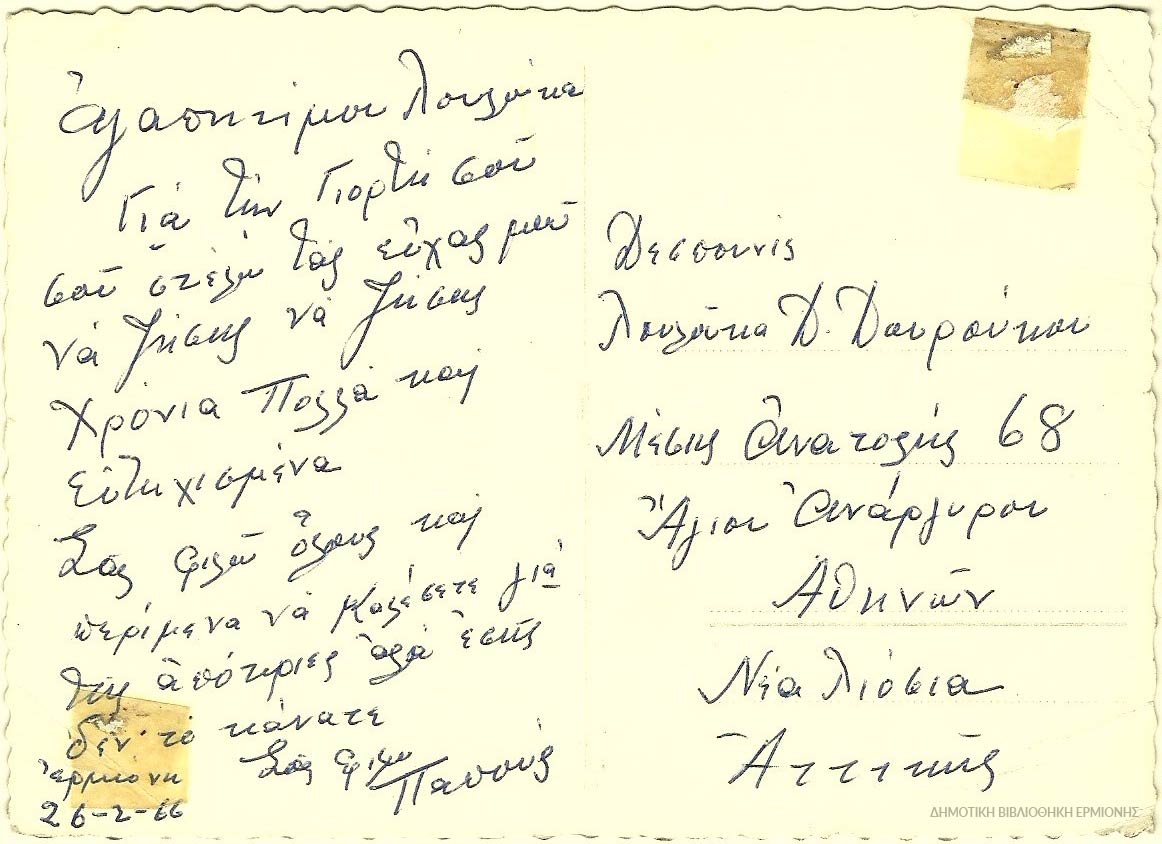 Ἀγαπητήμου Λουλούκα
Γιά τήν Γιορτή σοῦ
σοῦ στέλω τάς εὐχάς μοῦ
νά ζήσης νά ζήσης
χρόνια Πολλά καί
εὐτηχισμένα
Σᾶς φιλῶ ὅλους καί
περίμενα νά μέ καλέσετε γιά
τῆς ἀπόκριες ἀλά ἐσῆς
δέν τό κάνατε
Σᾶς φιλῶ
Παπούς
Ἑρμιόνη
26-2-66
Δεσποινίς
Λουλούκα Δ. Δουρούκου
Μέσης Ἀνατολῆς 68
Ἅγιοι Ἀνάργυροι
Ἀθηνῶν
Νέα Λιόσια
Ἀττικῆς
ΔΗΜΟΤΙΚΗ ΒΙΒΛΙΟΘΗΚΗ ΕΡΜΙΟΝΗΣ